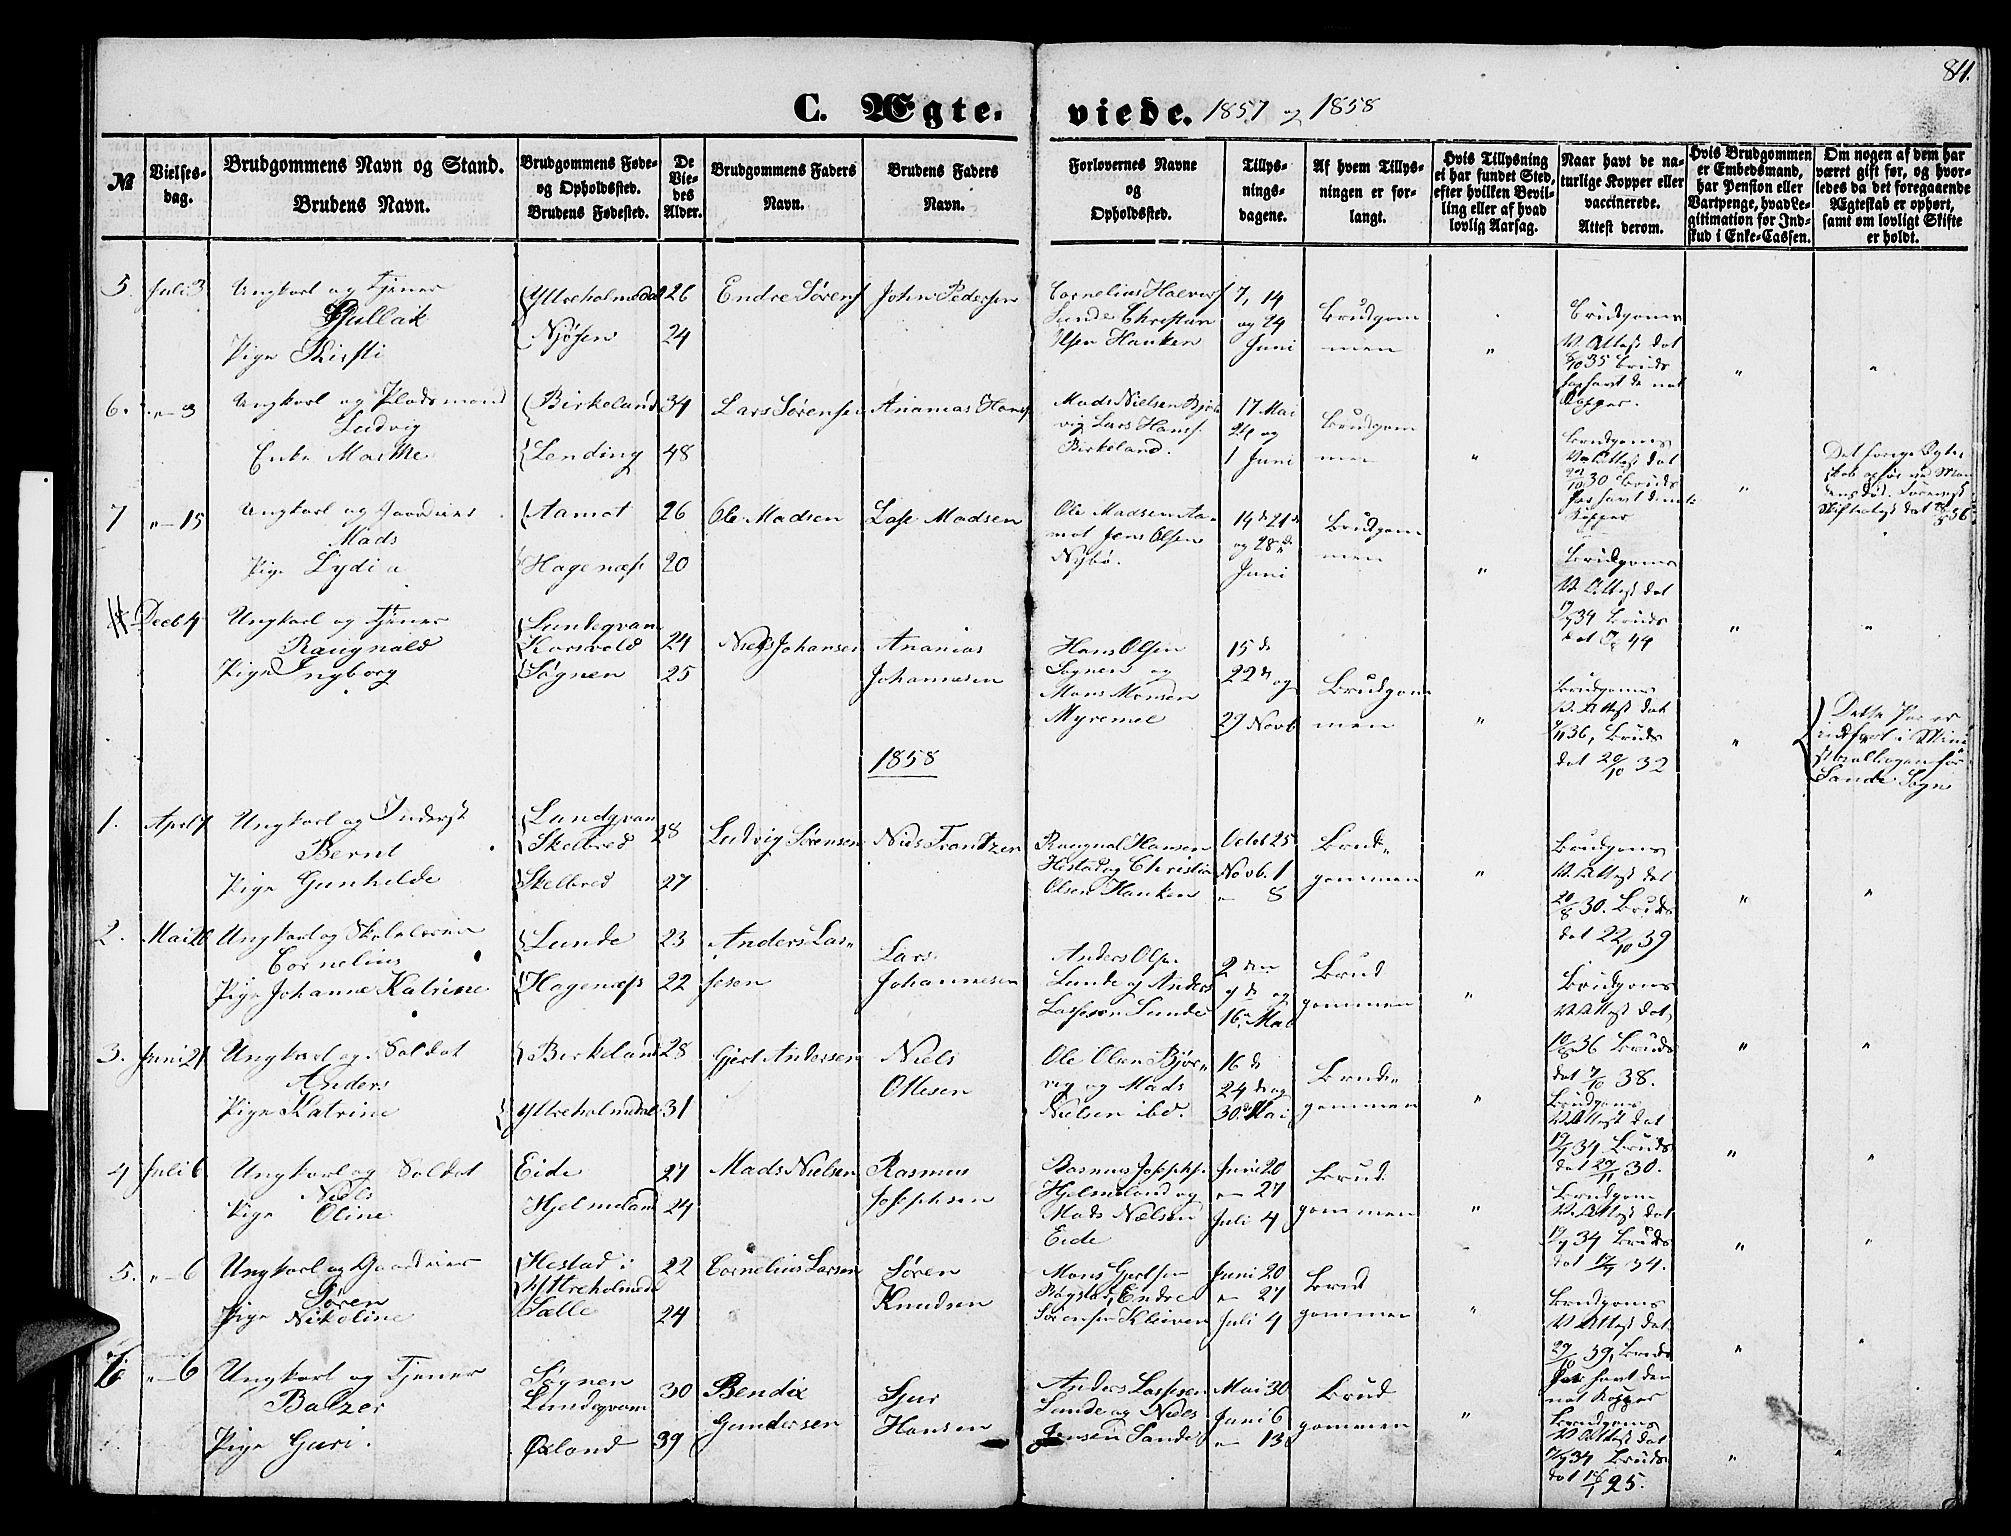 81.
C. Ægte-viede. 1857 og 1858
№
Vielses-dag.
Brudgommens Navn og Stand.
Brudens Navn.
Brudgommens Føde- og Opholdssted.
Brudens Fødested.
De Vie-des Alder.
Brudgommens Faders Navn.
Brudens Faders Navn.
Forlovernes Navne og Opholdssted.
Tillys-nings-dagene.
Af hvem Tillys-ningen er for-langt.
Hvis Tillysning ei har fundet Sted, efter hvilken Bevil-ling eller af hvad lovlig Aarsag.
Naar havt de na-turlige Kopper eller vaccinerede. Attest derom.
Hvis Brudgommen er Embedsmand, har Pension eller Vartpenge, hvad Le-gitimation for Ind-skud i Enke-Cassen.
Om nogen af dem har været gift før, og hvor-ledes da det foregaaende Ægteskab er ophørt, samt om lovligt Skifte er holdt.
5. Juli 3 Ungkarl og Tjener
Gullak
Pige Kirsti
Ytreholmedal 26
Njøsen 24
Endre Sørens
John Pedersen
Cornelius Halvors
Lunde Christian
Olsen Hauken
7, 14
og 24
Juni
Brudgom
men
Brudgoms
V. Attest dat
8/10 35 Bruds
har havt de nat
Kopper.
6. " 3 Ungkarl og Pladsmand
Ludvig
Enke Marthe
Birkeland 34
Lending 48
Lars Sørensen
Ananias Hans
Mads Nielsen Bjør
vig Lars Hans
Birkeland.
17 Mai
24 og
1 Juni
Brudgom
men
Brudgoms
V. Attest dat
30 Bruds
har havt de nat
Kopper
Det forrige Ægte
skab ophør ved Man
dens Død.
Skifteattest dat
7 " 15 Ungkarl og Gaardmand
Mads
Pige Lydia
Aamot 26
Hagenæss 20
Ole Madsen
Lasse Madsen
Ole Madsen Aa-
mot Jens Olsen
Nybø.
14de 21de
og 28de
Juni
Brudgom
men
Brudgoms
V. Attest dat
34 Bruds
dat 49
Decb 4 Ungkarl og Tjener
Raugnald
Pige Ingborg
Lundeqvam
Korsvold 24
Søgnen 25
Niels Johansen
Ananias
Johannesen
Hans Olsen
Sognen og
Mons Monsen
Myremel
15de
22de og
29 Novb
Brudgom
men
Brudgoms
V. Attest dat
36, Bruds
dat 20/10 32
Dette Par er
indført i Mini
sterialbogen for
Sande Sogn
1858
1. April 7 Ungkarl og Inderst
Bernt
Pige Gunhilde
Lundqvam
Skelbred 28
Skelbred 27
Ludvig Sørensen
Niels Frantzen
Raugnal Hansen
Hestad og Christian
Olsen Hauken
Octob 25
Novb. 1
" 8
Brud-
gommen
Brudgoms
V. Attest dat
20/8 30. Bruds
dat 22/10 39
2. Mai 26 Ungkarl og Skolelærer
Cornelius
Pige Johanne Katrine
Lunde 23
Hagenæss 22
Anders Las-
sesen
Lars
Johannesen
Anders Ols.
Lunde og Anders
Lassesen Lunde
2den
9de og
16. Mai
Brud
gommen
Brudgoms
V. Attest dat
36 Bruds
dat 7/10 38.
3. Juni 21 Ungkarl og Soldat
Anders
Pige Katrine
Birkeland 28
Ytreholmedal 31
Gjert Andersen
Niels
Ottesen
Ole Olsen Bjør-
vig og Mads
Nielsen ibd.
16de
24de og
30. Mai
Brud-
gommen
Brudgoms
V. Attest dat
34 Bruds
dat 30.
4 Juli 6 Ungkarl og Soldat
Niels
Pige Oline
Eide 27
Hjelmeland 24
Mads Nielsen
Rasmus
Josephsen
Rasmus Josephs.
Hjelmeland og
Mads Nielsen
Eide
Juni 20
" 27
Juli 4
Brud
gommen
Brudgom
V. Attest dat
34 Bruds
dat 34.
5. " 6 Ungkarl og Gaardmand
Søren
Pige Nikoline
Hestad i
Ytreholmedal 22
Sælle 24
Cornelius Larsen
Søren
Knudsen
Mons Gjertsen
Bøgstad, Endre
Sørensen Kleiven
Juni 20
" 27
Juli 4
Brud
gommen
Brudgoms
V. Attest dat
39, Bruds
har havt den
nat Kopper
6 " 6 Ungkarl og Tjener
Balzer
Pige Guri.
Søgnen
Lundqvam 30
Øxland 39
Bendix
Gundersen
Sjur
Hansen
Anders Lassesen
Lunde og Niels
Jensen Sande
Mai 30
Juni 6
" 13
Brud
gommen
Brudgoms
V. Attest dat
34 Bruds
dat 25.